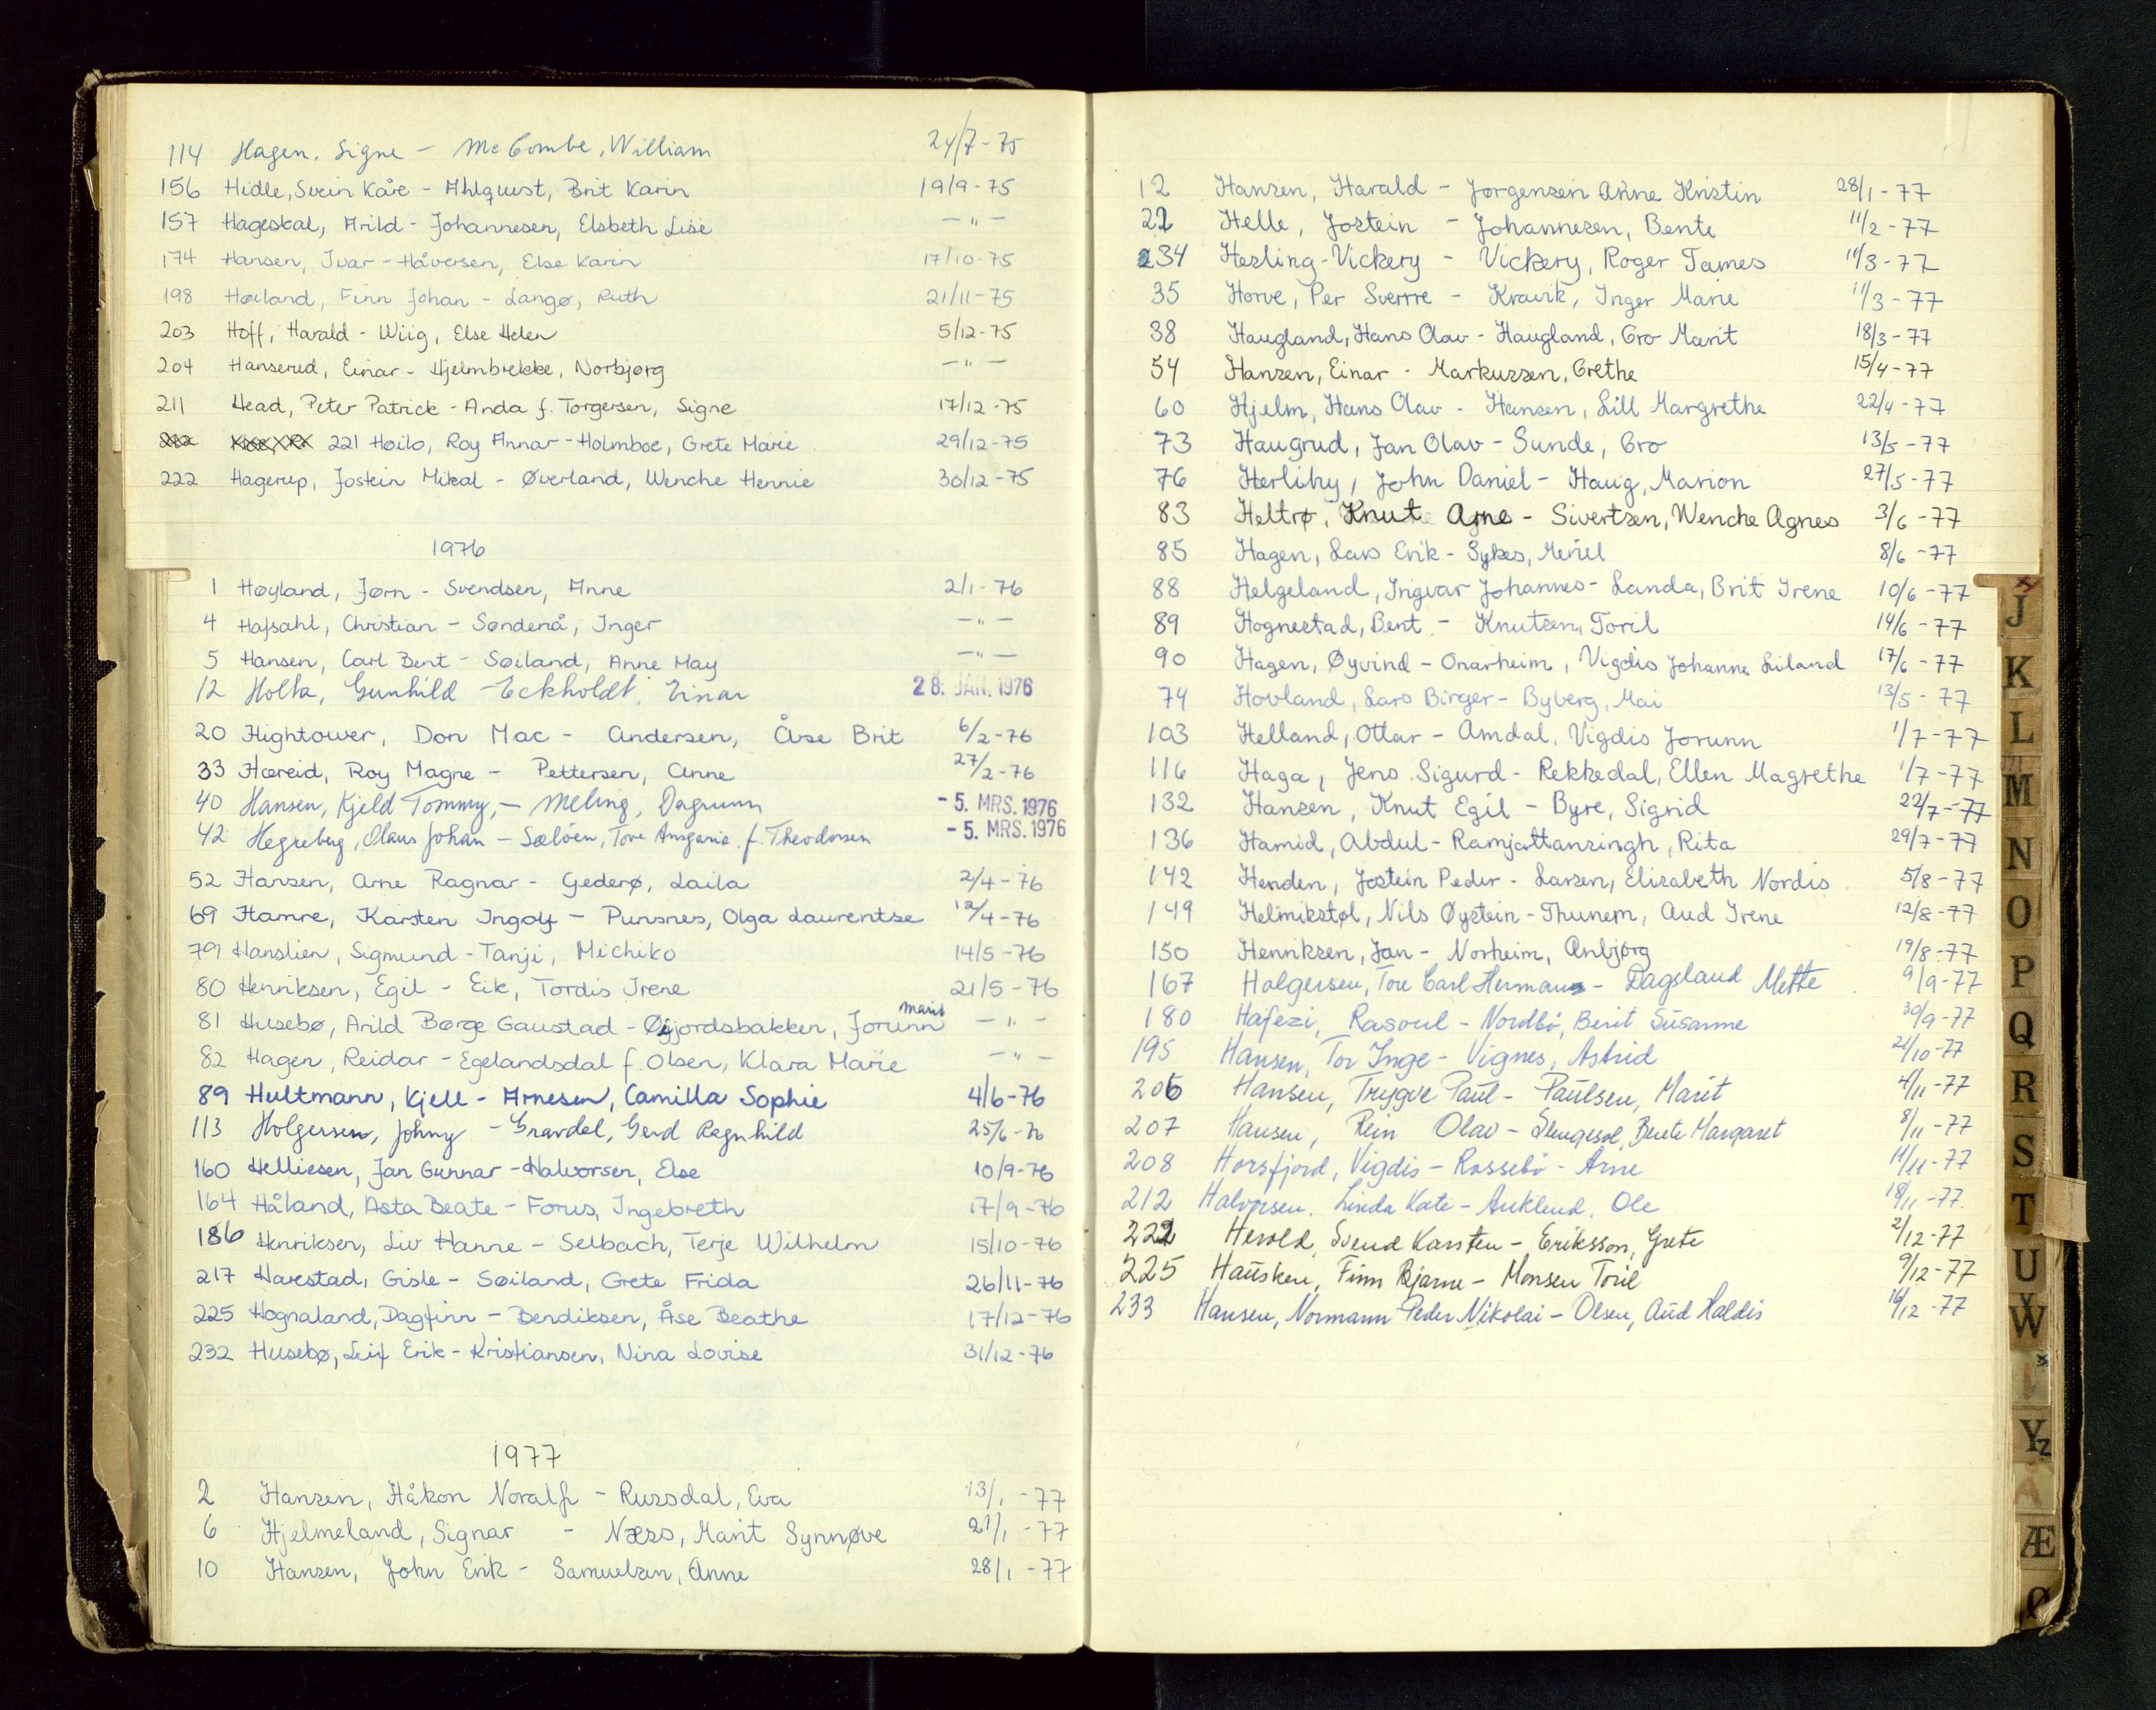 114 Hagen. Signe - Mc Combe, William 24/7-75
156 Hidle, Svein Kåre - Ahlquist, Brit Karin 19/9-75
157 Hageskal, Arild - Johannesen, Elsbeth Lise - " -
174 Hansen, Ivar - Håversen, Else Karin 17/10-75
198 Høiland, Finn Johan - Langø, Ruth 21/11-75
203 Hoff, Harald - Wiig, Else Helen 5/12-75
204 Hanserud, Einar - Hjelmbrekke, Norbjørg - " -
211 Head, Peter Patrick - Anda f. Torgersen, Signe 17/12-75
212 221 Høilo, Roy Annar - Holmboe, Grete Marie 29/12-75
222 Hagerup, Jostein Mikal - Øverland, Wenche Hennie 30/12-75
1976
1 Høyland, Jørn - Svendsen, Anne 2/1-76
4 Hafsahl, Christian - Søndenå, Inger - " -
5 Hansen, Carl Bent - Søiland, Anne May - " -
12 Holta, Gunhild - Eckholdt, Einar 28. JAN. 1976
20 Hightower, Don Mac - Andersen, Åse Brit 6/2-76
33 Hæreid, Roy Magne - Pettersen, Anne 27/2-76
40 Hansen, Kjeld Tommy, - Meling, Dagrunn - 5. MRS. 1976
42 Hegreberg, Olaus Johan - Sæløen, Tove Ansgaria. f. Theodorsen - 5. MRS. 1976
52 Hansen, Arne Ragnar - Gederø, Laila 2/4-76
69 Hamre, Karsten Ingolf - Pursnes, Olga Laurentse 12/4-76
79 Hanslien, Sigmund - Tanji, Michiko 14/5-76
80 Henriksen, Egil - Eik, Tordis Irene 21/5-76
81 Husebø, Arild Børge Gaustad - Øyjordsbakken, Jorunn Marit - " -
82 Hagen, Reidar - Egelandsdal f. Olsen, Klara Marie - " -
89 Hultmann, Kjell - Arnesen, Camilla Sophie 4/6-76
113 Holgersen, Johny - Gravdel, Gerd Ragnhild 25/6-76
160 Helliesen, Jan Gunnar - Halvorsen, Else 10/9-76
164 Håland, Asta Beate - Forus, Ingebreth 17/9-76
186 Henriksen, Liv Hanne - Selbach, Terje Wilhelm 15/10-76
217 Harestad, Gisle - Søiland, Grete Frida 26/11-76
225 Hognaland, Dagfinn - Bendiksen, Åse Beathe 17/12-76
232 Husebø, Leif Erik - Kristiansen, Nina Lovise 31/12-76
1977
2 Hansen, Håkon Noralf - Rursdal, Eva 13/1-77
6 Hjelmeland, Signar - Næss, Marit Synnøve 21/1-77
10 Hansen, John Erik - Samuelsen, Anne 28/1-77
12 Hansen, Harald - Jørgensen Anne Kristin 28/1-77
22 Helle, Jostein - Johannesen, Bente 11/2-77
34 Hesling-Vickery - Vickery, Roger James 11/3-77
35 Horve, Per Sverre - Kravik, Inger Marie 11/3-77
38 Haugland, Hans Olav - Haugland, Gro Marit 18/3-77
54 Hansen, Einar - Markussen, Grethe 15/4-77
60 Hjelm, Hans Olav - Hansen, Lill Margrethe 22/4-77
73 Haugrud, Jan Olav - Sunde, Gro 13/5-77
76 Herlihy, John Daniel - Haug, Marion 27/5-77
83 Heltrø, Knut Arne - Sivertsen, Wenche Agnes 3/6-77
85 Hagen, Lars Erik - Sykes, Meriel 8/6-77
88 Helgeland, Ingvar Johannes - Landa, Brit Irene 10/6-77
89 Hognestad, Bent - Knutsen, Toril 14/6-77
90 Hagen, Øyvind - Onarheim, Vigdis Johanne Liland 17/6-77
74 Hovland, Lars Birger - Byberg, Mai 13/5-77
103 Helland, Ottar - Amdal, Vigdis Jorunn 1/7-77
116 Haga, Jens Sigurd - Rekkedal, Ellen Magrethe 1/7-77
132 Hansen, Knut Egil - Byre, Sigrid 22/7-77
136 Hamid, Abdul - Ramjattansingh, Rita 29/7-77
142 Henden, Jostein Peder - Larsen, Elizabeth Nordis 5/8-77
149 Helmikstøl, Nils Øystein - Thunem, Aud Irene 12/8-77
150 Henriksen, Jan - Norheim, Anbjørg 19/8-77
167 Holgersen, Tore Carl Hermans - Dagsland Mette 9/9-77
180 Hafezi, Rasoul - Nordbö, Berit Susanne 30/9-77
195 Hansen, Tor Inge - Vignes, Astrid 21/10-77
206 Hansen, Trygve Paul - Paulsen, Marit 4/11-77
207 Hansen, Rein Olav - Slengesol, Bente Margaret 8/11-77
208 Horsfjord, Vigdis - Rossebö - Arne 11/11-77
212 Halvorsen, Linda Kate - Auklend, Ole 18/11-77
222 Herold, Svend Karsten - Eriksson, Grete 2/12-77
225 Hausken, Finn Bjarne - Monsen Toril 9/12-77
233 Hansen, Normann Peder Nikolai - Olsen, Aud Haldis 16/12-77
J
K
L
M
N
O
P
Q
R
S
T
U
V
W
Y
Z
Å
Æ
Ø